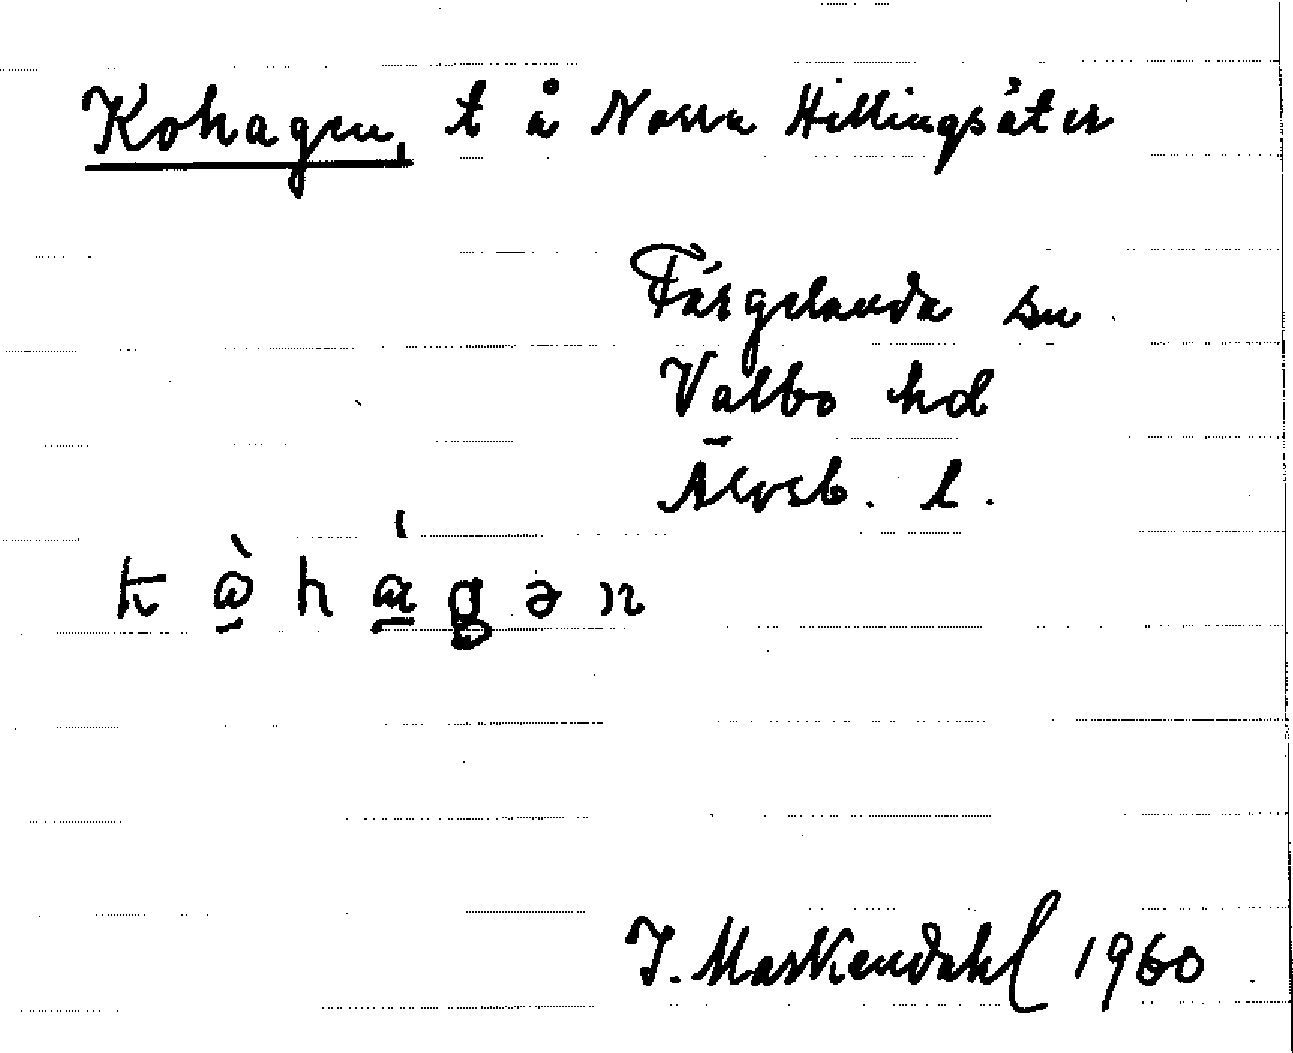 Kohagen, t å Norra Hillingsäter
Färgelanda sn
Valbo hd
Älvsb. l.
I. Markendahl 1960